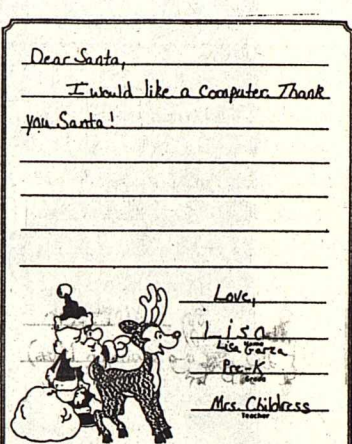 Dear Santa,
I would like a Computer. Thank
you Santa!
Love,
Lisa
Name
Lisa Garza
Pre-K
Grade
Mrs. Childress
Teacher